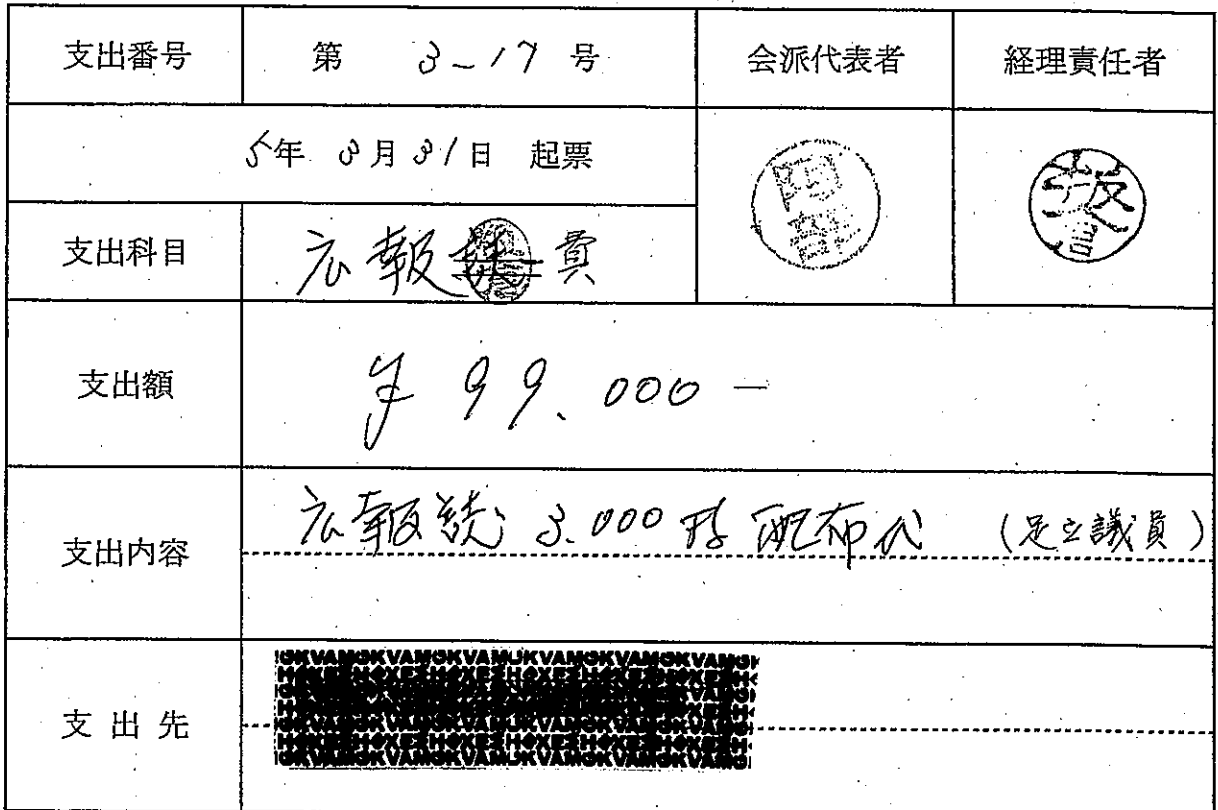 支出番号 第 3-17 号 会派代表者 経理責任者
5年 3月 31日 起票
阿部
支出科目 広報費
支出額 ¥99.000-
支出内容 広報誌 3.000部 配布代 (足立議員)
支出先